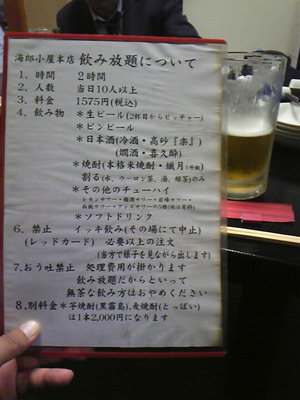 海郎小屋本店 飲み放題について
1、時間 2時間
2、人数 当日10人以上
3、料金 1575円(税込)
4、飲み物 *生ビール(2杯目からピッチャー)
*ビンビール
*日本酒(冷酒・高砂『楽』)
(燗酒・喜久酔)
*焼酎(本格米焼酎・銀月
割る(水、ウーロン茶、湯、緑茶)のみ
*その他のチューハイ
レモンサワー・梅酒サワー・岩峰サワー・
*ソフトドリンク
6、禁止 イッキ飲み(その場にて中止)
(レッドカード) 必要以上の注文
(当方で様子を見ながら出します)
7、おう吐禁止 処理費用が掛かります
飲み放題だからといって
無茶な飲み方はおやめください
8、別料金*芋焼酎(黒霧島)、麦焼酎(とっぱい)
は1本2,000円になります